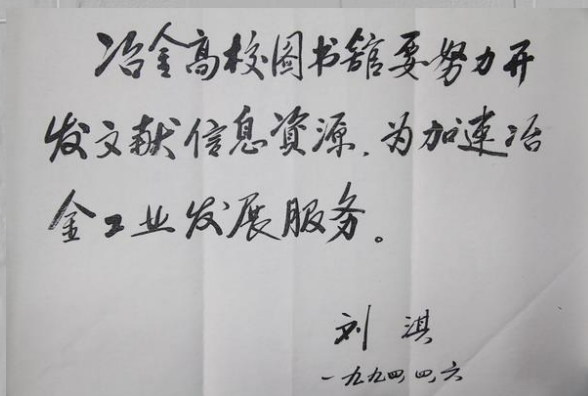 冶金高校图书舘要努力开
发文献信息資源，为加速冶
金工业发展服务。
刘淇
一九九四，四，六